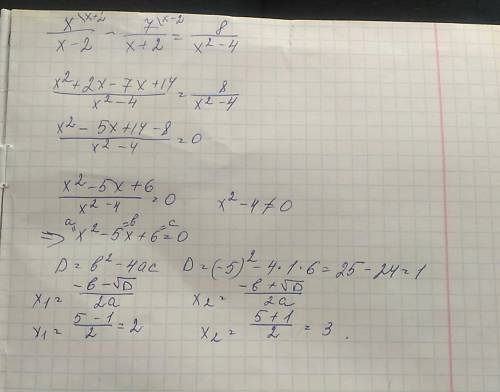 x\x+2 / x-2 - 7\x-2 / x+2 = 8 / x²-4
x²+2x-7x+14 / x²-4 = 8 / x²-4
x²-5x+14-8 / x²-4 = 0
x²-5x+6 / x²-4 = 0    x²-4≠0
a =b =c
=> x²-5x+6=0
D=b²-4ac    D=(-5)²-4·1·6=25-24=1
x₁= -b-√D / 2a    x₂= -b+√D / 2a
x₁= 5-1 / 2 = 2    x₂= 5+1 / 2 = 3.